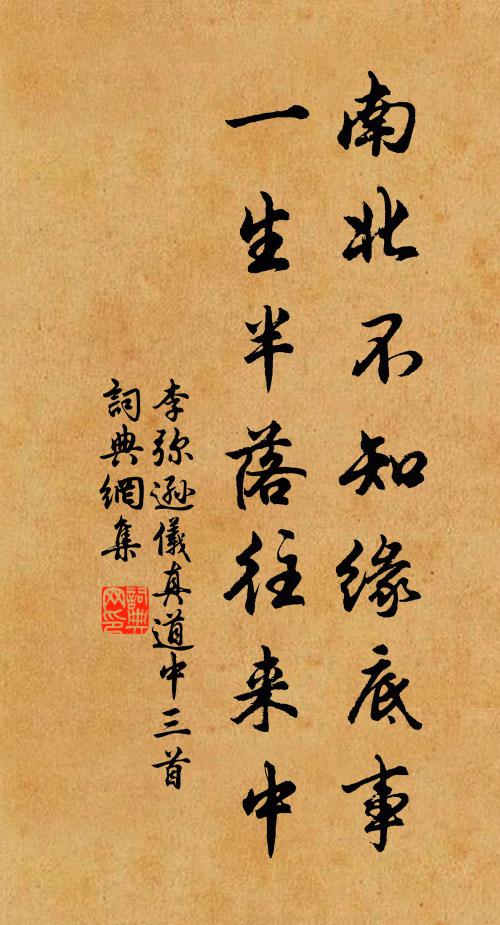 南北不知缘底事
一生半落往来中
李弥逊儀真道中三首
詞典網集
詞典网印